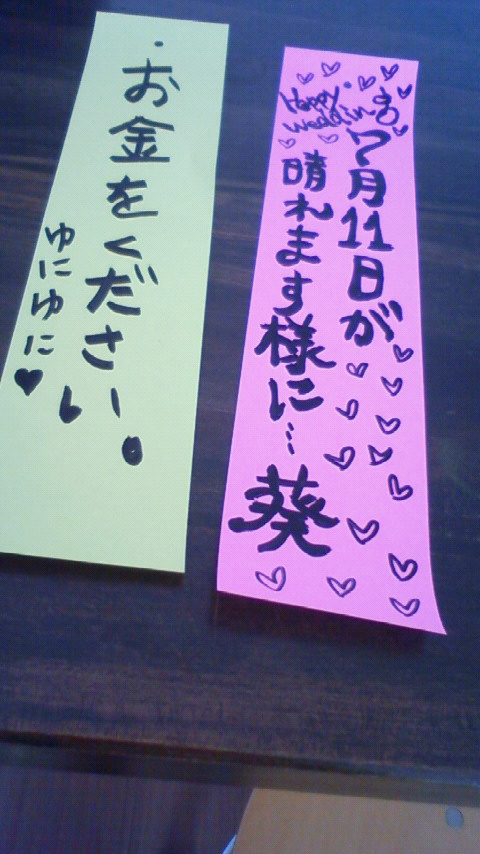 お金をください。
ゆにゆに♥
Happy wedding
7月11日が
晴れます様に…
葵